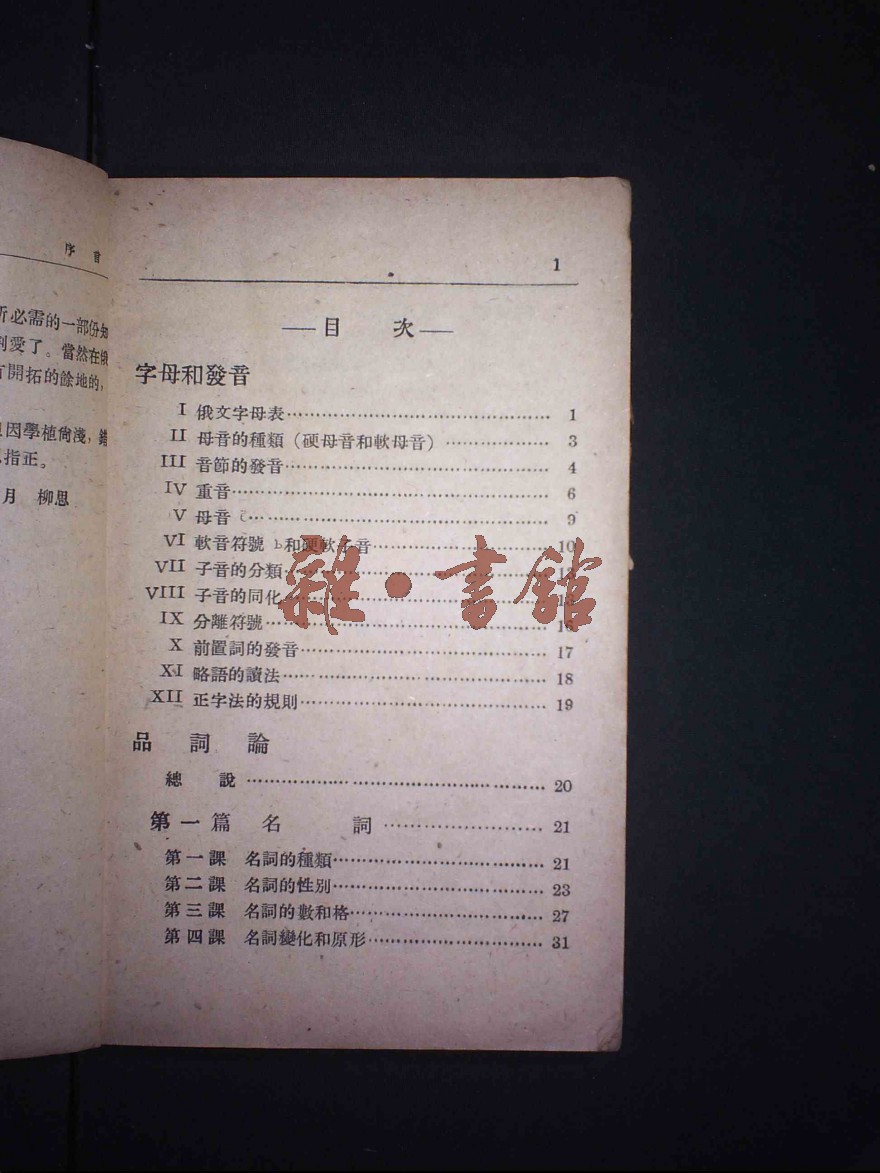 序言
所必需的一部份知
割愛了。當然在俄
有開拓的餘地的，
因學植尙淺，錯
指正。
月 柳思
1
—目 次—
字母和發音
I 俄文字母表 1
II 母音的種類（硬母音和軟母音） 3
III 音節的發音 4
IV 重音 6
V 母音 9
VI 軟音符號 ь和硬軟子音 10
VII 子音的分類
VIII 子音的同化
IX 分離符號 16
X 前置詞的發音 17
XI 略語的讀法 18
XII 正字法的規則 19
品詞論
總說 20
第一篇 名詞 21
第一課 名詞的種類 21
第二課 名詞的性別 23
第三課 名詞的數和格 27
第四課 名詞變化和原形 31
雜·書館